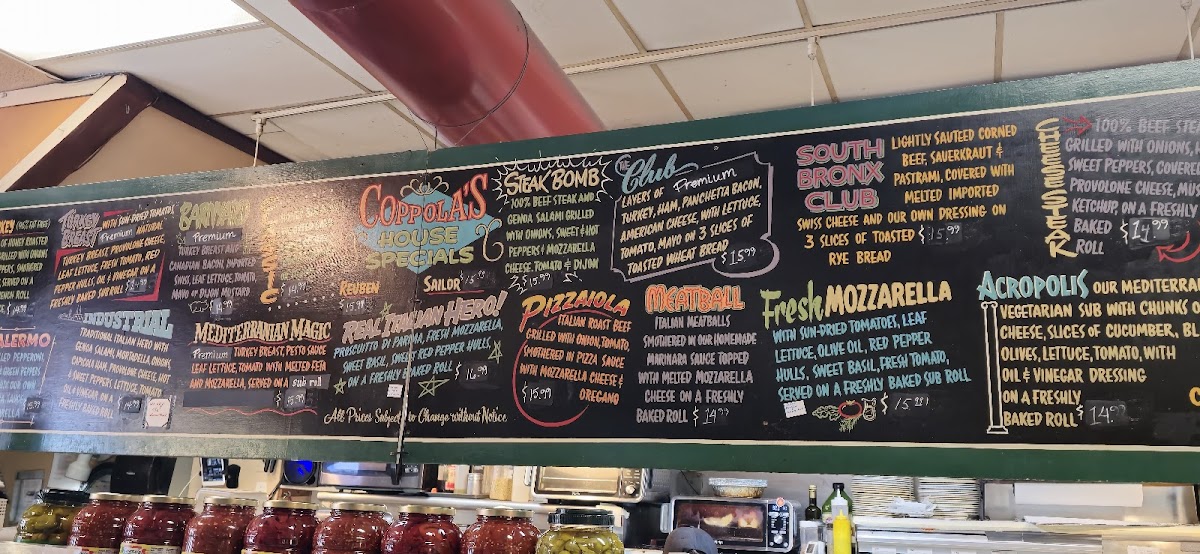 OF HONEY ROASTED
TURKEY
BREAST
WITH SUN-DRIED TOMATOES,
Premium NATURAL
TURKEY BREAST, PROVOLONE CHEESE,
LEAF LETTUCE, FRESH TOMATO, RED
PEPPER HULLS, OIL & VINEGAR ON A
FRESHLY BAKED SUB ROLL
BARNYARD
Premium
TURKEY BREAST AND
CANADIAN BACON, IMPORTED
SWISS, LEAF LETTUCE, TOMATO,
MAYO OR DIJON MUSTARD
COPPOLA'S
HOUSE
SPECIALS
REUBEN
$15.99
SAILOR $15.99
STEAK BOMB
100% BEEF STEAK AND
GENOA SALAMI GRILLED
WITH ONIONS, SWEET & HOT
PEPPERS & MOZZARELLA
CHEESE, TOMATO & DIJON
$15.99
THE Club
LAYERS OF Premium
TURKEY, HAM, PANCHETTA BACON,
AMERICAN CHEESE, WITH LETTUCE,
TOMATO, MAYO ON 3 SLICES OF
TOASTED WHEAT BREAD $15.99
SOUTH
BRONX
CLUB
LIGHTLY SAUTEED CORNED
BEEF, SAUERKRAUT &
PASTRAMI, COVERED WITH
MELTED IMPORTED
SWISS CHEESE AND OUR OWN DRESSING ON
3 SLICES OF TOASTED $15.99
RYE BREAD
100% BEEF
GRILLED WITH ONIONS,
SWEET PEPPERS, COVERED
PROVOLONE CHEESE,
KETCHUP, ON A FRESHLY
BAKED $14.99
ROLL
INDUSTRIAL
TRADITIONAL ITALIAN HERO WITH
GENOA SALAMI, MORTADELLA,
CAPICOLA HAM, PROVOLONE CHEESE, HOT
& SWEET PEPPERS, LETTUCE, TOMATO
OIL & VINEGAR ON A
FRESHLY BAKED ROLL
MEDITERRANIAN MAGIC
Premium TURKEY BREAST, PESTO SAUCE
LEAF LETTUCE, TOMATO WITH MELTED FETA
AND MOZZARELLA, SERVED ON A sub roll
$15.99
REAL ITALIAN HERO!
PROSCUITTO DI PARMA, FRESH MOZZARELLA,
SWEET BASIL, SWEET RED PEPPER HULLS,
ON A FRESHLY BAKED ROLL $16.99
All Prices Subject to Change without Notice
PIZZAIOLA
ITALIAN ROAST BEEF
GRILLED WITH ONION, TOMATO,
SMOTHERED IN PIZZA SAUCE
WITH MOZZARELLA CHEESE &
$15.99 OREGANO
MEATBALL
ITALIAN MEATBALLS
SMOTHERED IN OUR HOMEMADE
MARINARA SAUCE TOPPED
WITH MELTED MOZZARELLA
CHEESE ON A FRESHLY
BAKED ROLL $14.99
Fresh MOZZARELLA
WITH SUN-DRIED TOMATOES, LEAF
LETTUCE, OLIVE OIL, RED PEPPER
HULLS, SWEET BASIL, FRESH TOMATO,
SERVED ON A FRESHLY BAKED SUB ROLL
$15.99
ACROPOLIS OUR MEDITERRA
VEGETARIAN SUB WITH CHUNKS O
CHEESE, SLICES OF CUCUMBER, BL
OLIVES, LETTUCE, TOMATO, WITH
OIL & VINEGAR DRESSING
ON A FRESHLY
BAKED ROLL $14.99